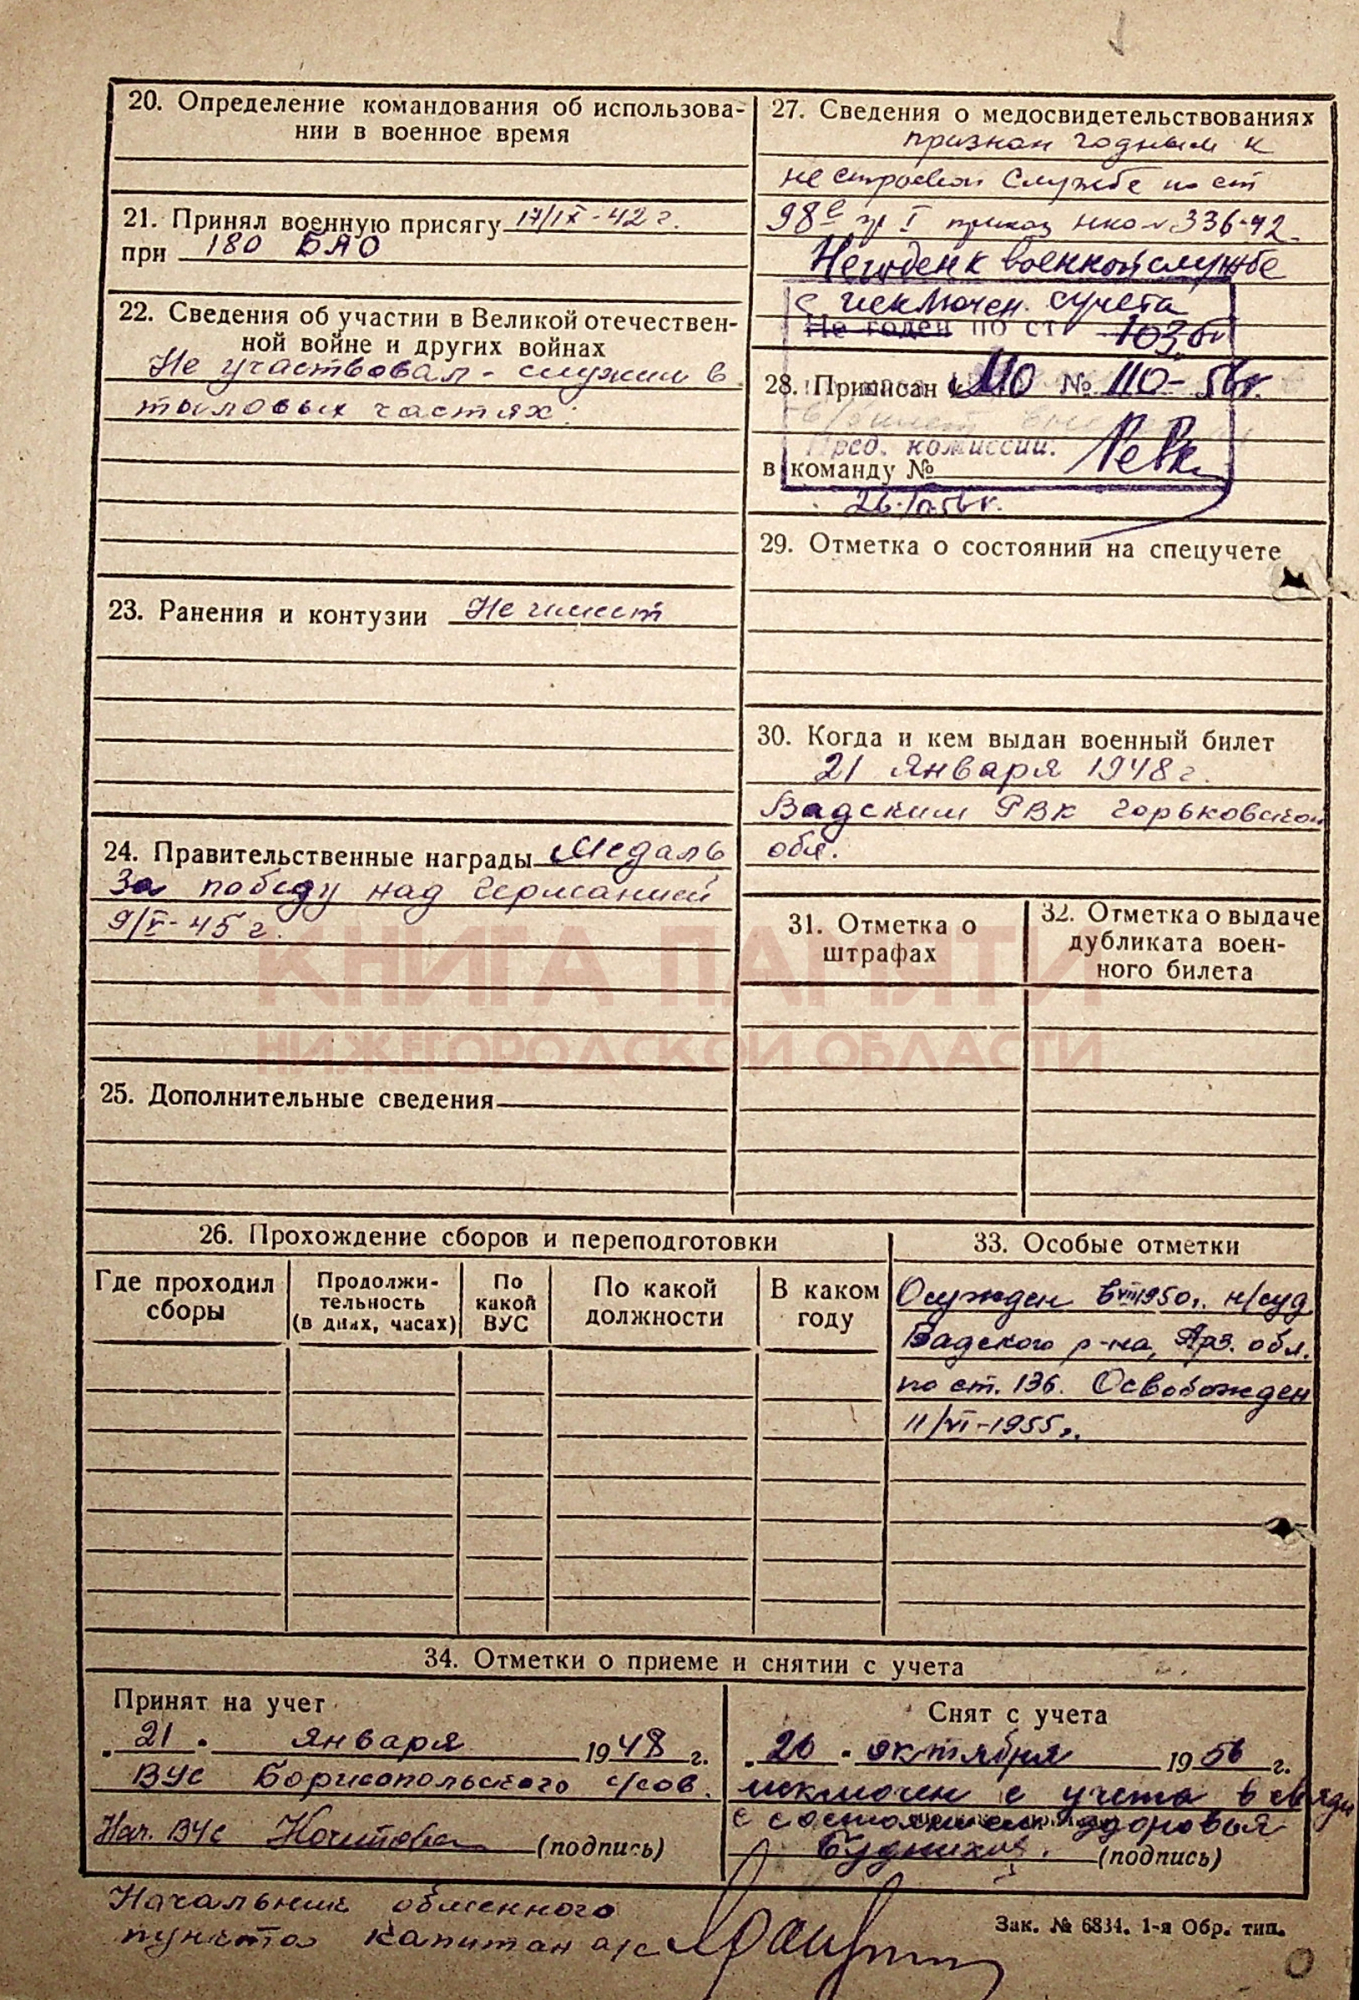 20. Определение командования об использова-
нии в военное время
21. Принял военную присягу 17/IX-42 г.
при 180 БАО
22. Сведения об участии в Великой отечествен-
ной войне и других войнах
Не участвовал - служил в
тыловых частях.
23. Ранения и контузии Не имеет
24. Правительственные награды Медаль
За победу над Германией
9/V-45 г.
25. Дополнительные сведения
27. Сведения о медосвидетельствованиях
признан годным к
не строевой службе по ст
98 гр I приказ НКО № 336-42
Не годен к военной службе
с исключен. с учета
Не годен по ст 103б
28. Приписан к МО № 110-56г.
Пред. комиссии:
в команду №
26.10.56г.
29. Отметка о состоянии на спецучете
30. Когда и кем выдан военный билет
21 января 1948 г.
Вадским РВК Горьковской
обл.
31. Отметка о
штрафах
32. Отметка о выдаче
дубликата воен-
ного билета
КНИГА ПАМЯТИ
НИЖЕГОРОДСКОЙ ОБЛАСТИ
26. Прохождение сборов и переподготовки
Где проходил
сборы
Продолжи-
тельность
(в днях, часах)
По
какой
ВУС
По какой
должности
В каком
году
33. Особые отметки
Осужден в VIII 1950г. н/суд
Вадского р-на, Арз. обл.
по ст. 136. Освобожден
11/VI-1955г.
34. Отметки о приеме и снятии с учета
Принят на учет
21 января 1948 г.
ВУС Борисопольского с/сов.
Нач. ВУС (подпись)
Снят с учета
26 октября 1956 г.
исключен с учета в связи
с состоянием здоровья
(подпись)
Начальник обменного
пункта капитан а/с
Зак. № 6834. 1-я Обр. тип.